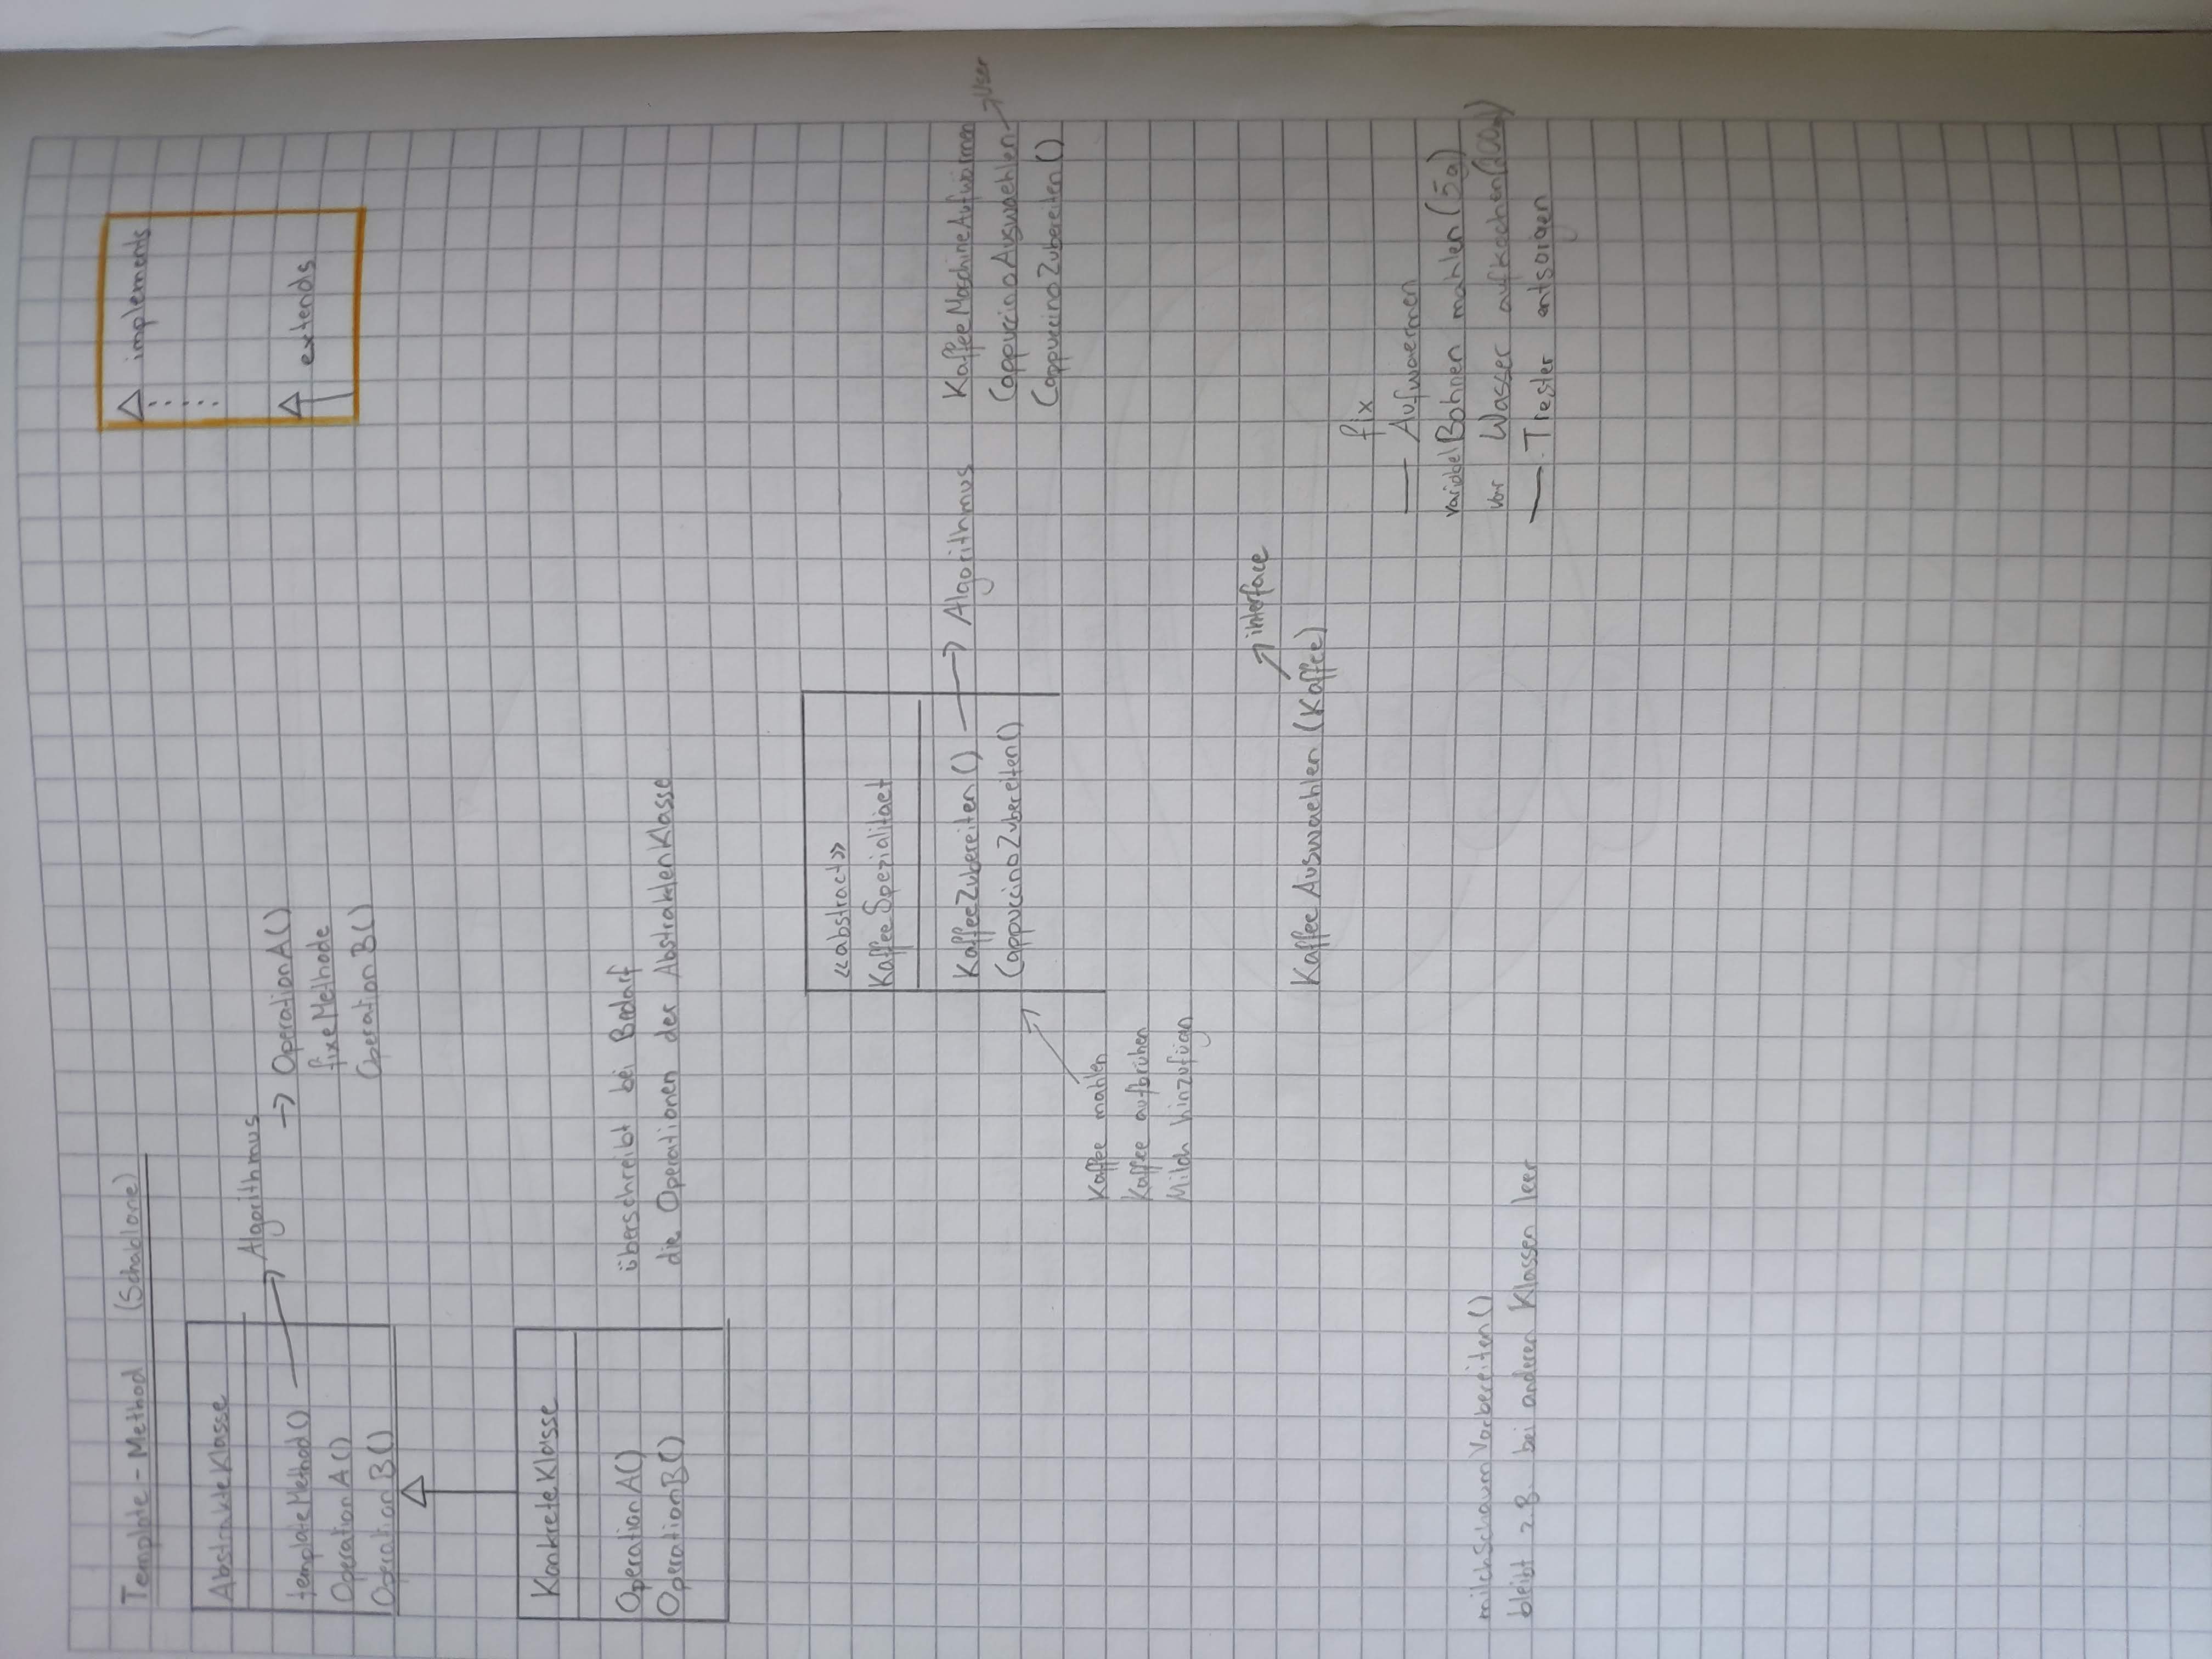 Template-Method (Schablone)
implements
extends
AbstrakteKlasse
templateMethod()
OperationA()
OperationB()
Algorithmus
→ OperationA()
fixeMethode
OperationB()
KonkreteKlasse
OperationA()
OperationB()
überschreibt bei Bedarf
die Operationen der AbstraktenKlasse
<<abstract>>
KaffeeSpezialitaet
KaffeeZubereiten()
CappuccinoZubereiten()
Algorithmus
KaffeeMaschineAufwärmen
CappuccinoAuswaehlen
User
CappuccinoZubereiten()
Kaffee mahlen
Kaffee aufbrühen
Milch hinzufügn
interface
KaffeeAuswaehlen (Kaffee)
fix
— Aufwaermen
variabel Bohnen mahlen (5g)
var Wasser aufkochen
— Trester entsorgen
milchSchaumVorbereiten()
bleibt z.B. bei anderen Klassen leer